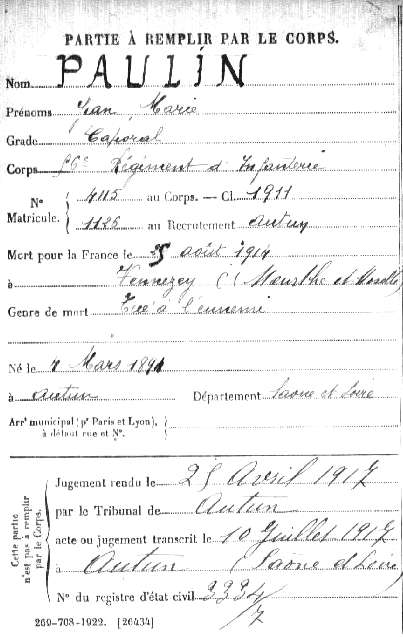 PARTIE À REMPLIR PAR LE CORPS.
Nom PAULIN
Prénoms Jean Marie
Grade Caporal
Corps Régiment d'Infanterie
N° Matricule. 4115 au Corps. — Cl. 1911
1125 au Recrutement Autun
Mort pour la France le 25 août 1914
à Vennezey (Meurthe et Moselle)
Genre de mort Tué à l'ennemi
Né le Mars
à Autun Département Saône et Loire
Arrt municipal (pr Paris et Lyon), à défaut rue et N°.
Cette partie n'est pas à remplir par le Corps.
Jugement rendu le 25 Avril 1917
par le Tribunal de Autun
acte ou jugement transcrit le 10 Juillet 1917
à Autun (Saône et Loire)
N° du registre d'état civil 3334/7
269-708-1922. [26434]